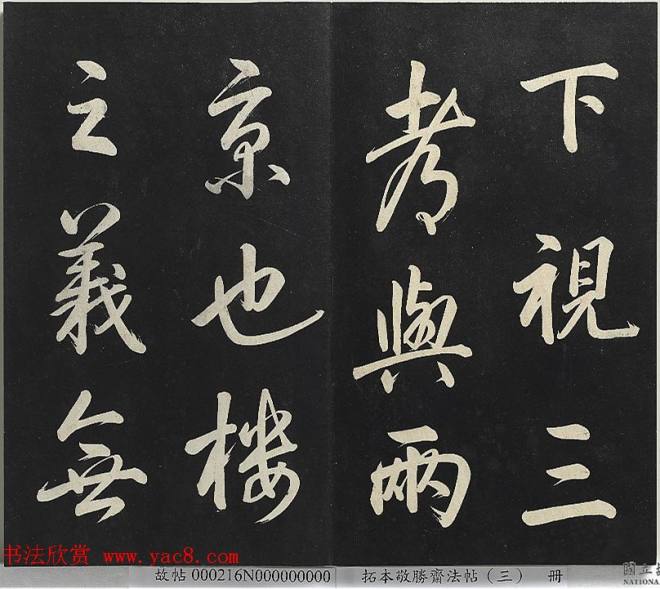 下視三
考與兩
京也樓
之義無
书法欣赏 www.yac8.com
故帖 000216N000000000
拓本敬勝齋法帖（三） 冊
國立
NATIONA